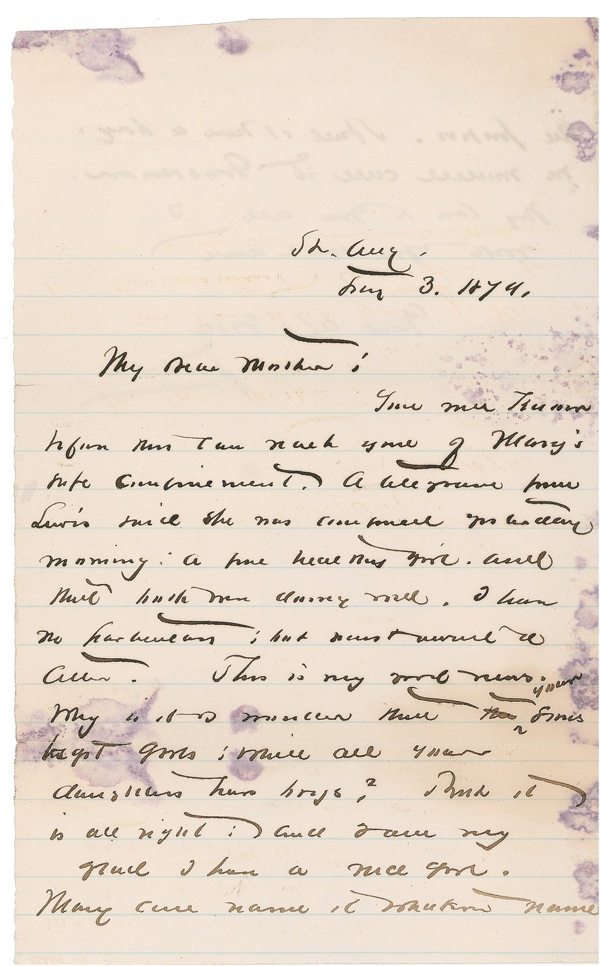 St. Aug.
Jany 3. 1879.
My dear Mother;
You will know
before this can reach you of Mary's
safe confinement. A telegram from
Lewis said she was confined yesterday
morning: a fine healthy girl. and
that both were doing well. I have
no particulars; but must await a
letter. This is my good news.
Why is it so Mother that your sons
begot girls; while all your
daughters have boys? But it
is all right; and I am very
glad I have a nice girl.
Mary can name it whatever name